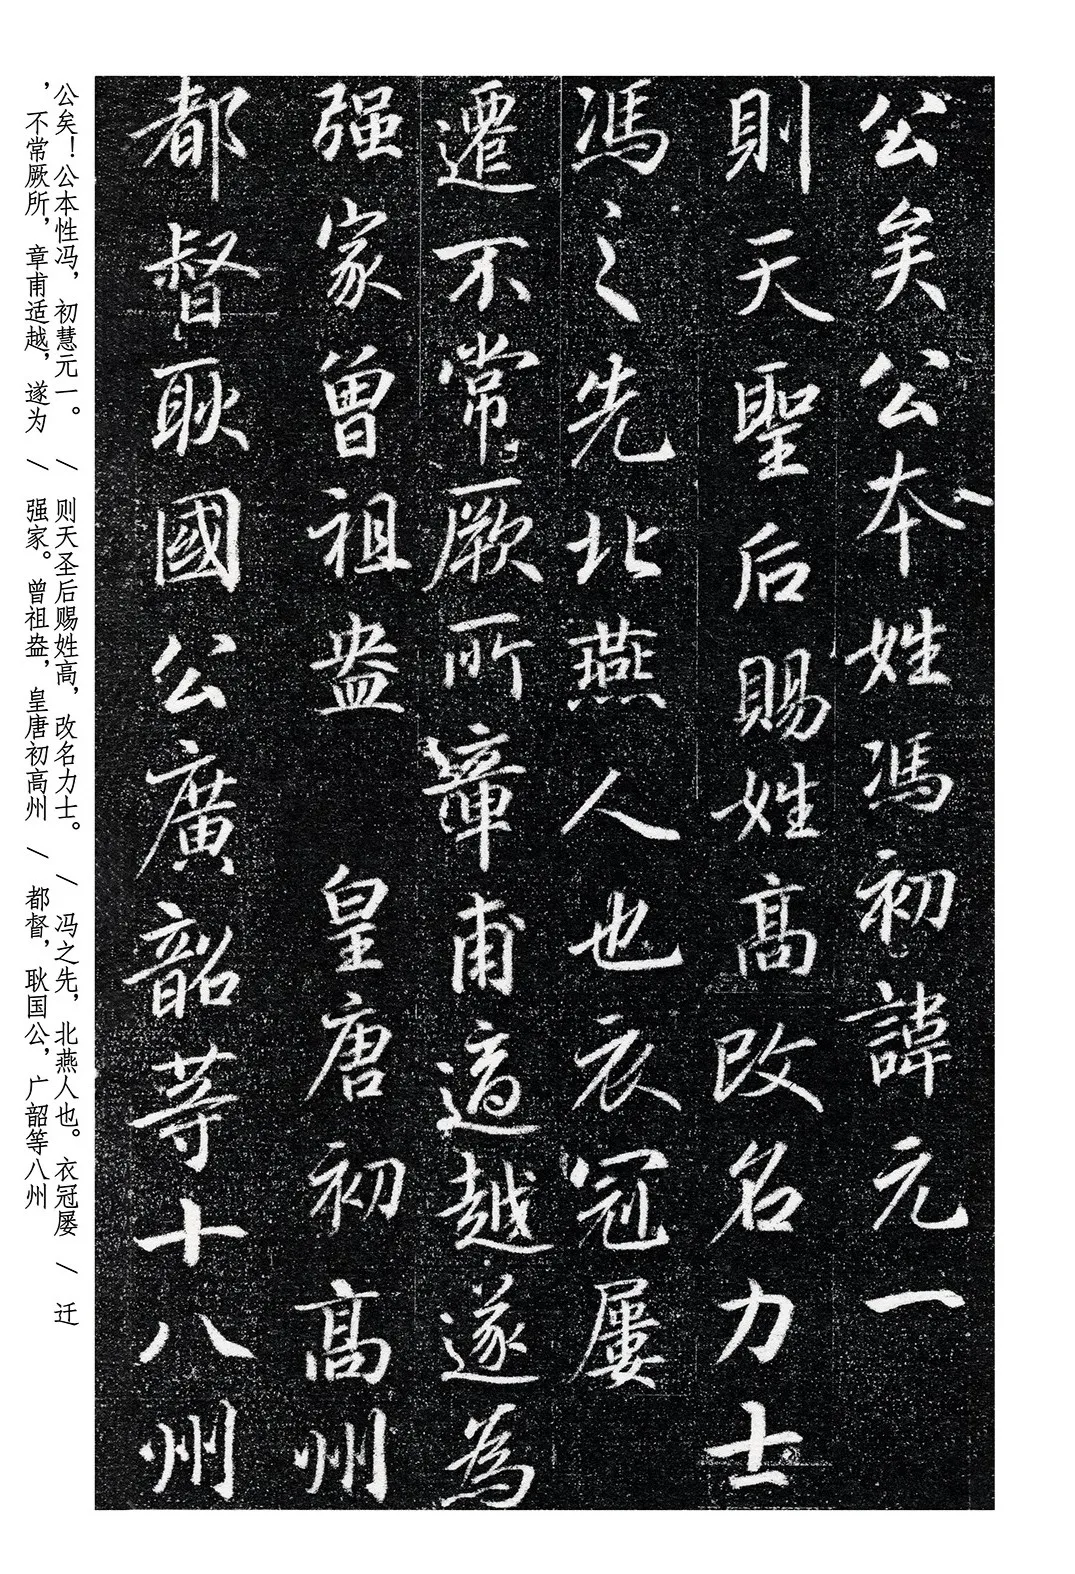 公矣公本姓馮初諱元一
則天聖后賜姓髙改名力士
馮之先北燕人也衣冠屢
遷不常厥所章甫適越遂為
强家曾祖盎 皇唐初髙州
都督耿國公廣韶等十八州
公矣！公本性冯，初慧元一。 / 则天圣后赐姓高，改名力士。 / 冯之先，北燕人也。衣冠屡 / 迁
，不常厥所，章甫适越，遂为 / 强家。曾祖盎，皇唐初高州 / 都督，耿国公，广韶等八州